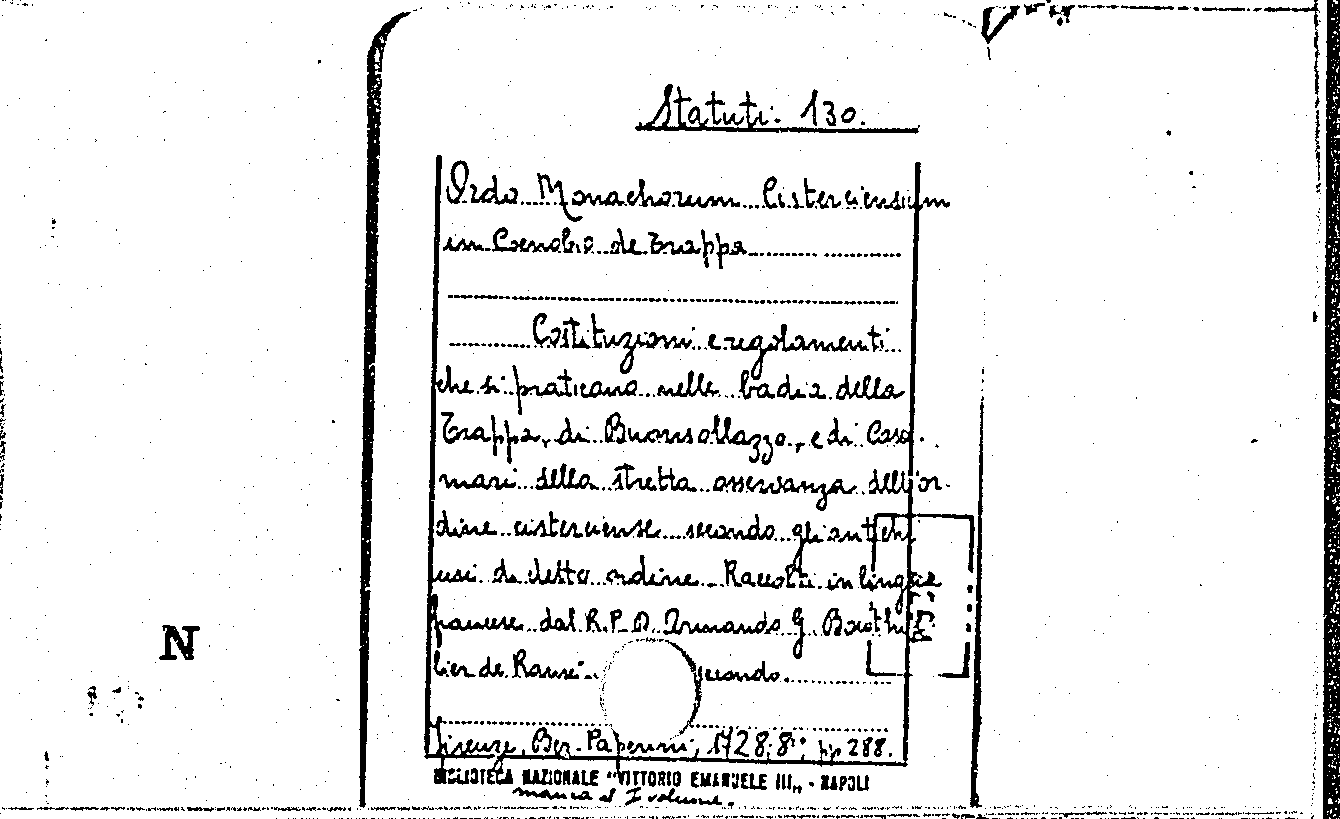 Statuti. 130.
Ordo Monachorum Cisterciensium
in Cœnobio de Trappa
Costituzioni e regolamenti
che si praticano nelle badia della
Trappa, di Buonsollazzo, e di Casa-
mari della stretta osservanza dell'or-
dine cisterciense secondo gli antichi
usi di detto ordine. Raccolti in lingua
francese dal R. P. D. Armando G. Bouthil-
lier de Rancé. secondo.
Firenze, Ber. Paperini, 1728; 8°; pp 288.
BIBLIOTECA NAZIONALE "VITTORIO EMANUELE III„ - NAPOLI
manca il I volume.
N